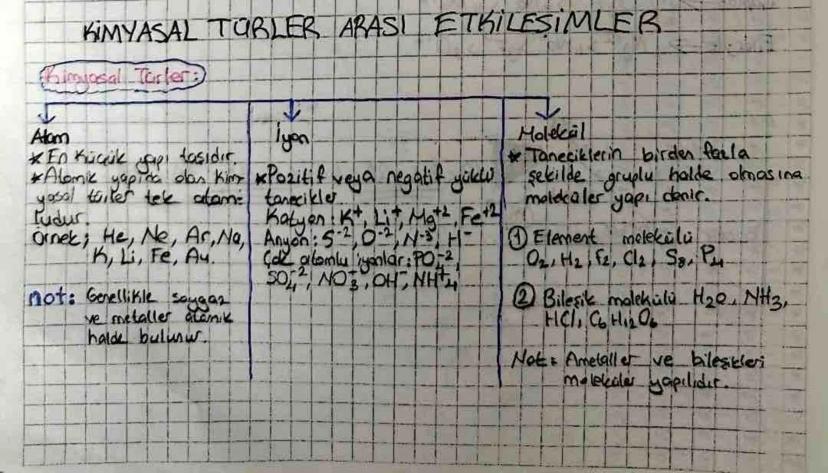 KİMYASAL TÜRLER ARASI ETKİLEŞİMLER
Kimyasal Türler:
Atom
* En küçük yapı taşıdır.
* Atomik yapıda olan kim-
yasal türler tek atom-
ludur.
Örnek; He, Ne, Ar, Na,
K, Li, Fe, Au.
not: Genellikle soygaz
ve metaller atomik
halde bulunur.
İyon
* Pozitif veya negatif yüklü
tanecikler
Katyon: K⁺, Li⁺, Mg⁺², Fe⁺²
Anyon: S⁻², O⁻², N⁻³, H⁻
Çok atomlu iyonlar: PO⁻²,
SO₄⁻², NO₃⁻, OH⁻, NH₄⁺
Molekül
* Taneciklerin birden fazla
şekilde gruplu halde olmasına
moleküler yapı denir.
① Element molekülü
O₂, H₂, F₂, Cl₂, S₈, P₄
② Bileşik molekülü H₂O, NH₃,
HCl, C₆H₁₂O₆
Not: Ametaller ve bileşikleri
moleküler yapılıdır.